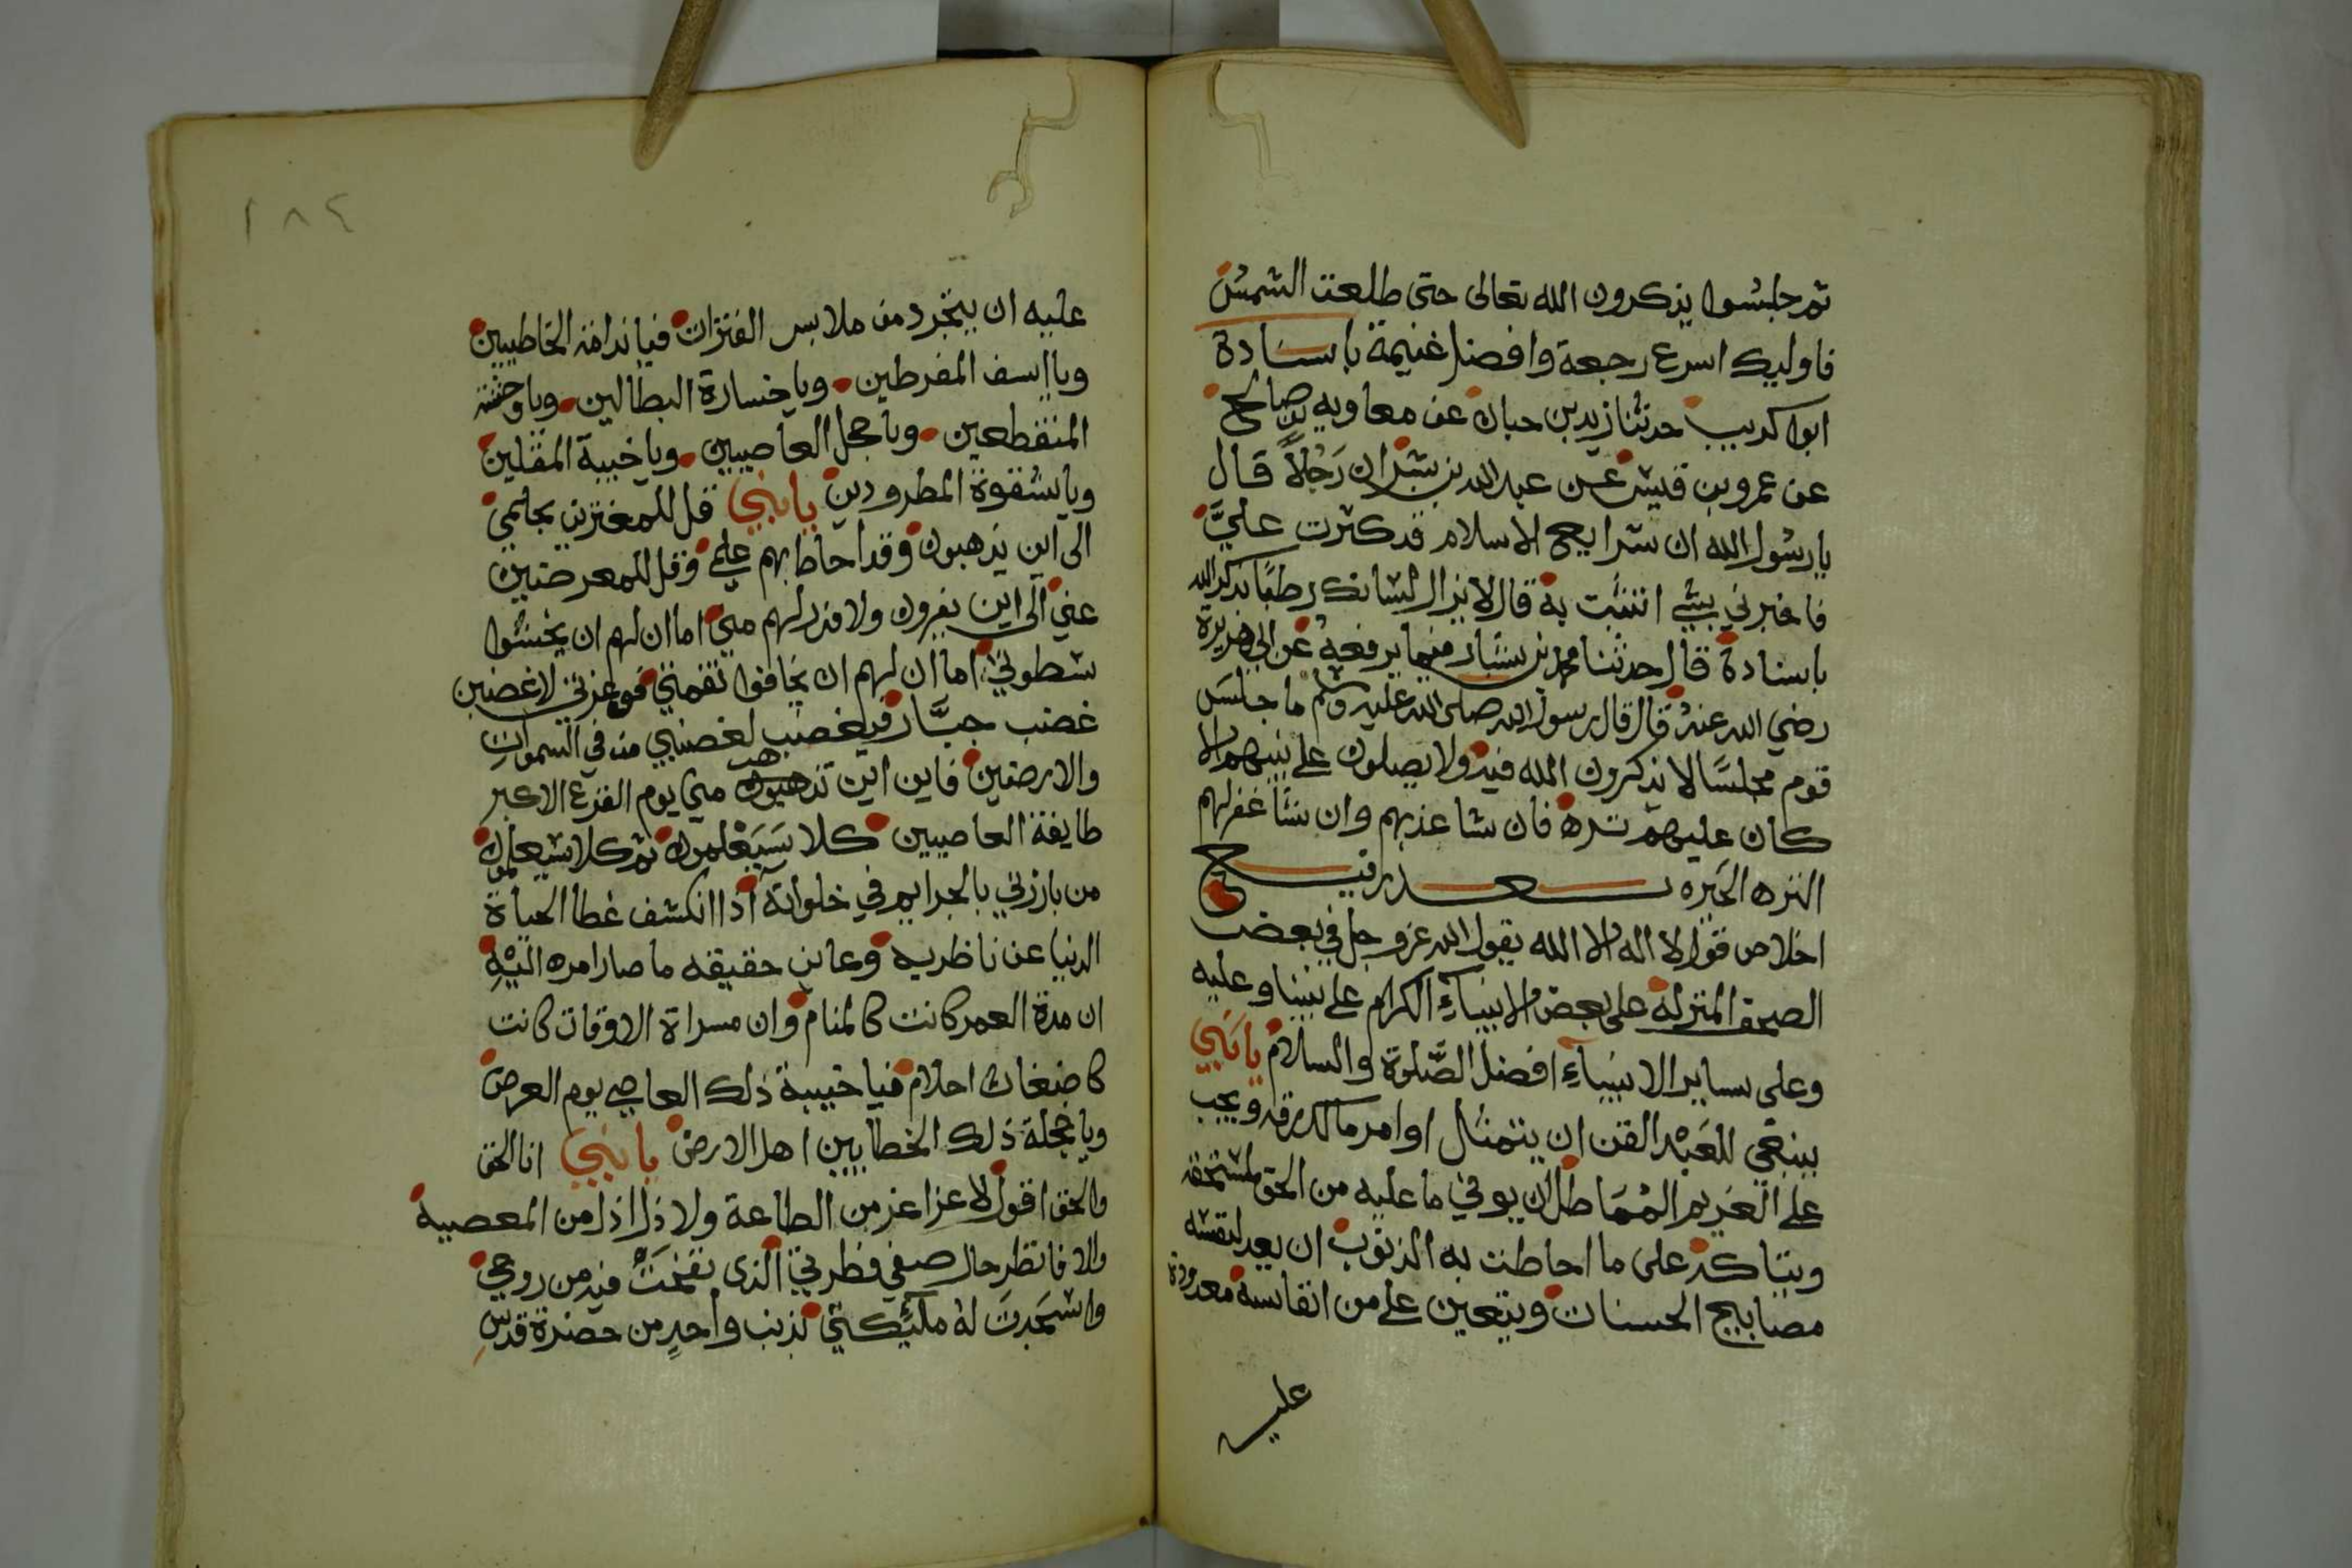 ثم جلسوا يذكرون الله تعالى حتى طلعت الشمس
فاوليك اسرع رجعة وافضل غنيمة باسناده
ابوا كريب حدثنا زيد بن حبان عن معاويه بن صالح
عن عمرو بن قيس عن عبد الله بن بشر ان رَجُلاً قال
يا رسول الله ان شرايع الاسلام قد كثرت عليَّ
فاخبرني بشي اتثبت به قال لا يزال لسانك رطبًا بذكر الله
باسناده قال حدثنا محمد بن بشار فيما يرفعه عن ابي هريرة
رضي الله عنه قال قال رسول الله صلى الله عليه وسلم ما جلسَ
قوم مجلسًا لا يذكرون الله فيه ولا يصلون على نبيهم الا
كان عليهم تره فان شا عذبهم وان شا غفر لهم
التره الحَيره
اخلاص قول لا اله الا الله يقول الله عز وجل في بعض
الصحف المنزلة على بعض الانبياءِ الكرام على نبينا وعليه
وعلى ساير الانبياءِ افضل الصَّلوة والسلام يا نَبي
ينبغي للعَبْد القن ان يتمثل اوامر مالك رقه ويجب
على الغريم المُمَاطل ان يوفي ما عليه من الحق لمستحقه
ويتاكد على ما احاطت به الذنوب ان يعد لنفسه
مصابيح الحسنات ويتعين على من انفاسه معدودة
عليه
١٨٤
عليه ان يتجرد من ملابس الفترات فيا ندامة الخاطيين
ويا اسف المفرطين وياخسارة البطالين وياوحشة
المنقطعين وياخجل العاصيين وياخيبة المقلين
وياشقوة المطرودين يا نبي قل للمغترين بحلمي
الى اين يذهبون وقد احاط بهم علمي وقل للمعرضين
عني الى اين يفرون ولا فرار لهم مني اما ان لهم ان يخشوا
سطوتي اما ان لهم ان يخافوا نقمتي فوعزتي لاغضبن
غضب جبَّار فيغضب لغضبي من في السمواتِ
والارضين فاين اين تذهبون مني يوم الفزع الاكبر
طايفة العاصيين كلا سَيَعْلمون ثم كلا سيعلمون
من بارزني بالجرايم في خلواته اذا انكشف غطا الحياة
الدنيا عن ناظريه وعاين حقيقه ما صار امره اليْهِ
ان مدة العمر كانت كالمنام وان مسراة الاوقات كانت
كاضغاث احلام فيا خيبة ذلك العاصي يوم العرض
وياخجلة ذلك الخطا بين اهل الارض يا نبي انا الحق
والحق اقول لا عز اعز من الطاعة ولا ذل اذل من المعصية
والا فانظر حال صفي فطرتي الذى نفختُ فيه من روحي
واسْجَدتَ لهُ ملئكتي بذنب واحدٍ من حضرة قدسِ